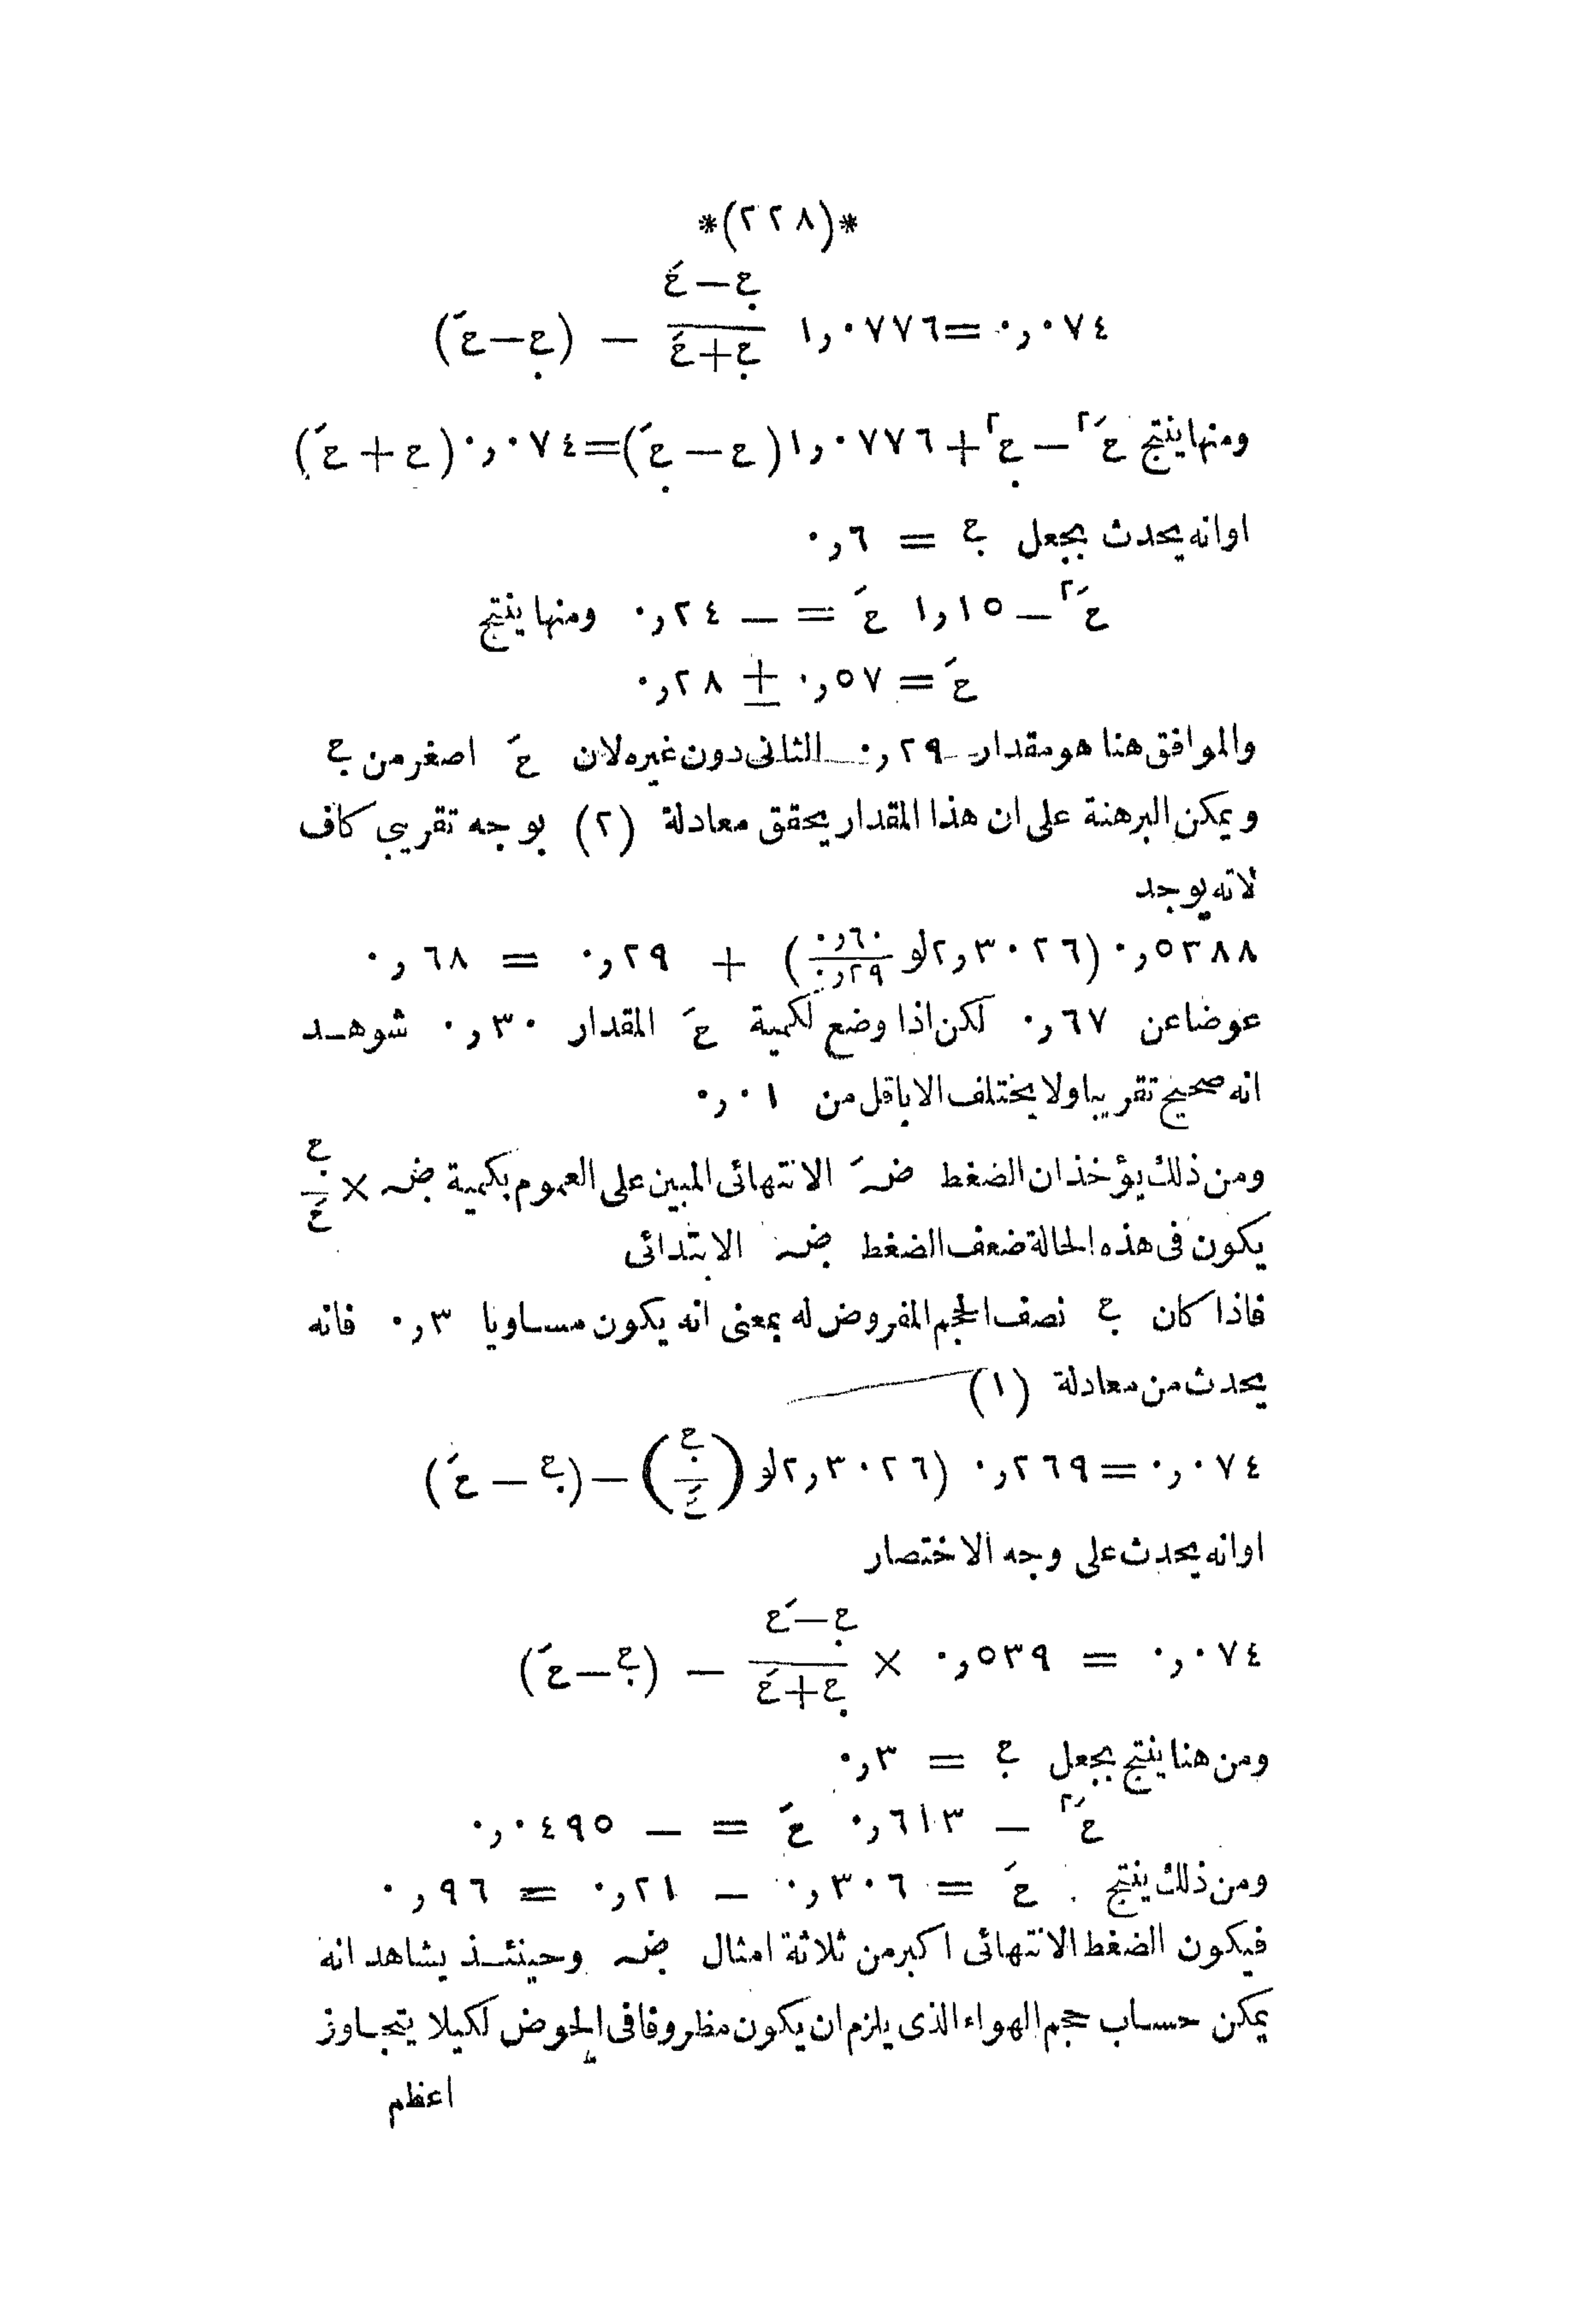 *(٢٢٨)*
٠٫٠٧٤ = ١٫٠٧٧٦ (ح. − حَ)/(ح. + حَ) − (ح. − حَ)
ومنها ينتج حَ٢ − ح.٢ + ١٫٠٧٧٦ (ح. − حَ) = ٠٫٠٧٤ (ح. + حَ)
اوانه يحدث بجعل ح. = ٠٫٦
حَ٢ − ١٫١٥ حَ = − ٠٫٢٤ ومنها ينتج
حَ = ٠٫٥٧ ± ٠٫٢٨
والموافق هنا هو مقدار ٠٫٢٩ الثانى دون غيره لان حَ اصغر من ح.
ويمكن البرهنة على ان هذا المقدار يحقق معادلة (٢) بوجه تقريبى كاف
لانه يوجد
٠٫٥٣٨٨ (٢٫٣٠٢٦ لو ٠٫٦٠/٠٫٢٩) + ٠٫٢٩ = ٠٫٦٨
عوضا عن ٠٫٦٧ لكن اذا وضع لكمية حَ المقدار ٠٫٣٠ شوهد
انه صحيح تقريبا ولا يختلف الا باقل من ٠٫٠١
ومن ذلك يؤخذ ان الضغط ضَ الانتهائى المبين على العموم بكمية ض. × ح./حَ
يكون فى هذه الحالة ضعف الضغط ض. الابتدائى
فاذا كان ح. نصف الحجم المفروض له بمعنى انه يكون مساويا ٠٫٣ فانه
يحدث من معادلة (١)
٠٫٠٧٤ = ٠٫٢٦٩ (٢٫٣٠٢٦ لو (ح./حَ) − (ح. − حَ)
اوانه يحدث على وجه الاختصار
٠٫٠٧٤ = ٠٫٥٣٩ × (ح. − حَ)/(ح. + حَ) − (ح. − حَ)
ومن هنا ينتج بجعل ح. = ٠٫٣
حَ٢ − ٠٫٦١٣ حَ = − ٠٫٠٤٩٥
ومن ذلك ينتج حَ = ٠٫٣٠٦ − ٠٫٢١ = ٠٫٩٦
فيكون الضغط الانتهائى اكبر من ثلاثة امثال ض. وحينئذ يشاهد انه
يمكن حساب حجم الهواء الذى يلزم ان يكون مظروفا فى الحوض لكيلا يتجاوز
اعظم